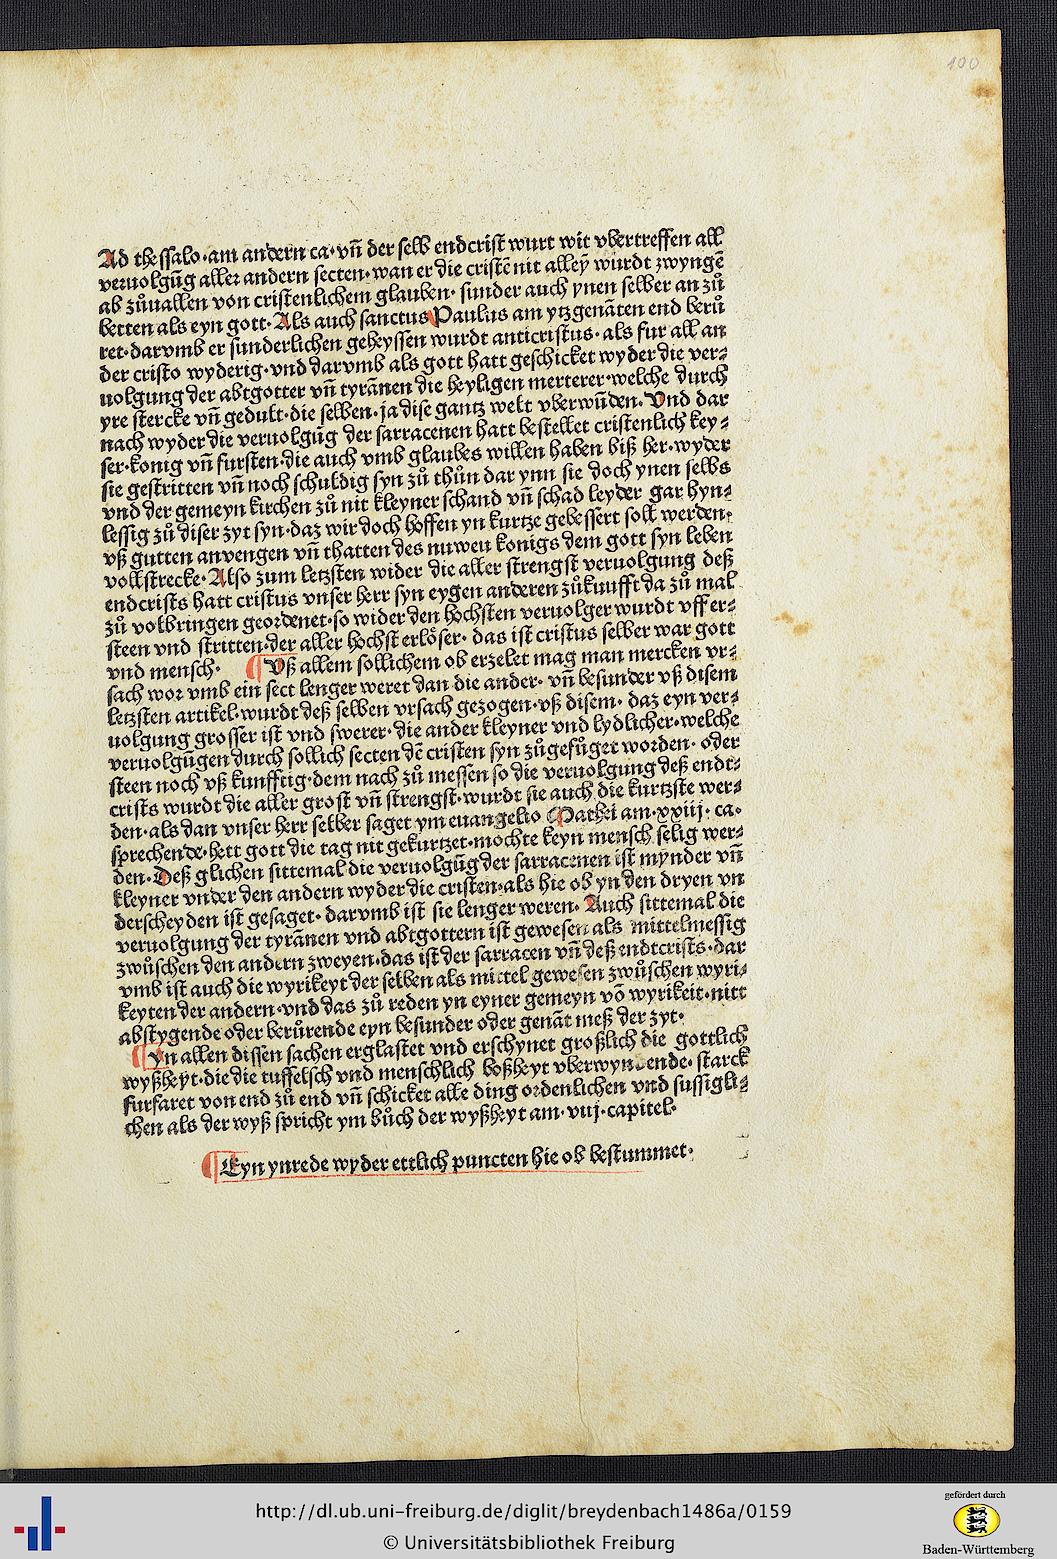 100
Ad thessalo·am andern ca·vñ der selb endcrist wurt wit vbertreffen all
veruolgūg aller andern secten·wan er die cristē nit alleȳ wurdt zwyngē
ab zůuallen von cristenlichem glauben· sunder auch ynen selber an zů
betten als eyn gott· Als auch sanctus Paulus am ytzgenāten end berů
ret·darvmb er sunderlichen geheyssen wurdt anticristus· als fur all an
der cristo wyderig·vnd darvmb als gott hatt geschicket wyder die ver⸗
uolgung der abtgotter vñ tyrānen die heyligen merterer·welche durch
yre stercke vñ gedult·die selben·ja dise gantz welt vberwūden· Vnd dar
nach wyder die veruolgūg der sarracenen hatt bestellet cristenlich key⸗
ser·konig vñ fursten·die auch vmb glaubes willen haben biß her·wyder
sie gestritten vñ noch schuldig syn zů thůn dar ynn sie doch ynen selbs
vnd der gemeyn kirchen zů nit kleyner schand vñ schad leyder gar hyn⸗
lessig zů diser zyt syn·daz wir doch hoffen yn kurtze gebessert soll werden·
vß gutten anvengen vñ thatten des nuwen konigs dem gott syn leben
vollstrecke· Also zum letzsten wider die aller strengst veruolgung deß
endcrists hatt cristus vnser herr syn eygen anderen zůkunfft da zů mal
zů volbringen geordenet·so wider den hochsten veruolger wurdt vff er⸗
steen vnd stritten·der aller hochst erlöser· das ist cristus selber war gott
vnd mensch· ¶ Vß allem sollichem ob erzelet mag man mercken vr⸗
sach wor vmb ein sect lenger weret dan die ander· vñ besunder vß disem
letzsten artikel·wurdt deß selben vrsach gezogen·vß disem· daz eyn ver⸗
uolgung grosser ist vnd swerer·die ander kleyner vnd lydlicher·welche
veruolgūgen durch sollich secten dē cristen syn zůgefůget worden· oder
steen noch vß kunfftig·dem nach zů messen so die veruolgung deß endt⸗
crists wurdt die aller grost vñ strengst·wurdt sie auch die kurtzste wer⸗
den·als dan vnser herr selber saget ym euangelio Mathei am·xxiij· ca·
sprechende·hett gott die tag nit gekurtzet·mochte keyn mensch selig wer⸗
den· Deß glichen sittemal die veruolgūg der sarracenen ist mynder vñ
kleyner vnder den andern wyder die cristen·als hie ob yn den dryen vn
derscheyden ist gesaget· darvmb ist sie lenger weren· Auch sittemal die
veruolgung der tyrānen vnd abtgottern ist gewesen als mittelmessig
zwůschen den andern zweyen·das ist der sarracen vñ deß endtcrists·dar
vmb ist auch die wyrikeyt der selben als mittel gewesen zwůschen wyri⸗
keyten der andern·vnd das zů reden yn eyner gemeyn vō wyrikeit·nitt
abstygende oder berůrende eyn besunder oder genāt meß der zyt·
¶ Yn allen dissen sachen erglastet vnd erschynet großlich die gottlich
wyßheyt·die die tuffelsch vnd menschlich boßheyt vberwyndende· starck
furfaret von end zů end vñ schicket alle ding ordenlichen vnd sussigli⸗
chen als der wyß spricht ym bůch der wyßheyt am·viij·capitel·
¶ Eyn ynrede wyder ettlich puncten hie ob bestummet·
http://dl.ub.uni-freiburg.de/diglit/breydenbach1486a/0159
© Universitätsbibliothek Freiburg
gefördert durch
Baden-Württemberg